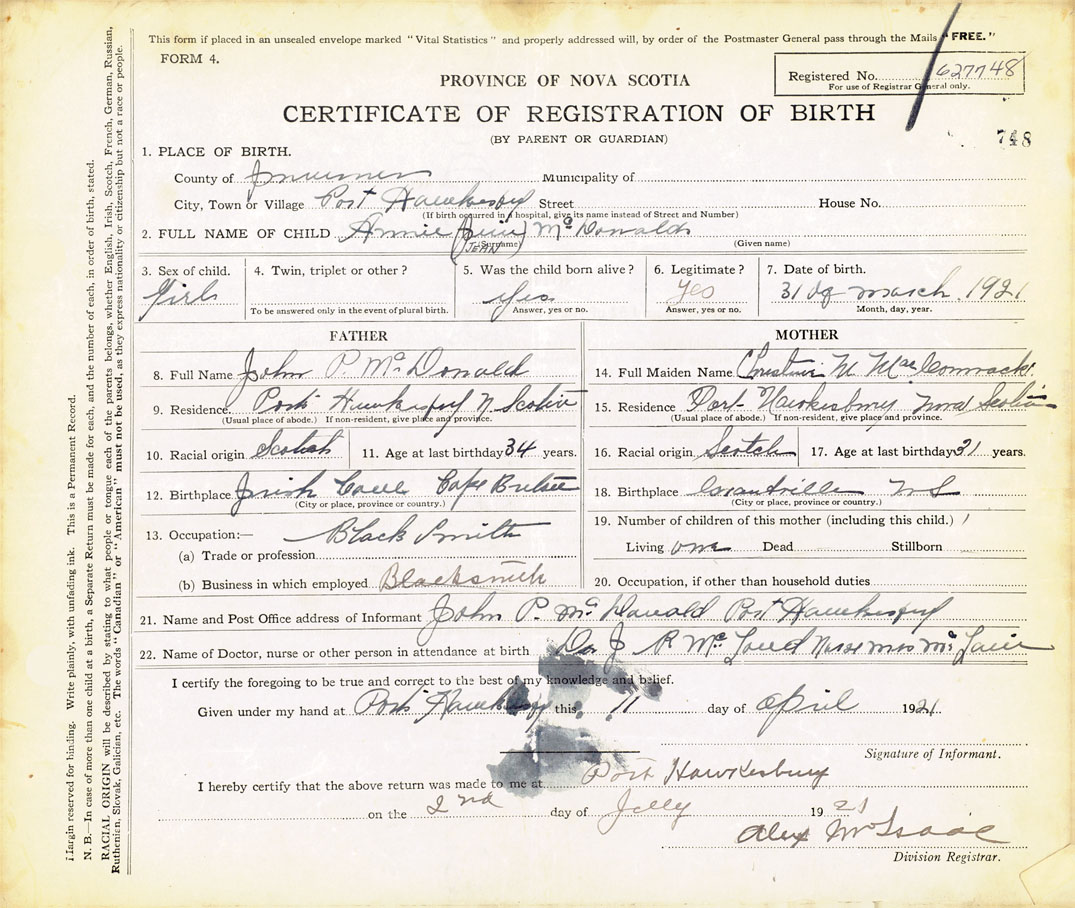 This form if placed in an unsealed envelope marked "Vital Statistics" and properly addressed will, by order of the Postmaster General pass through the Mails "FREE."
FORM 4.
Registered No. 627748
For use of Registrar General only.
PROVINCE OF NOVA SCOTIA
CERTIFICATE OF REGISTRATION OF BIRTH
(BY PARENT OR GUARDIAN)
748
1. PLACE OF BIRTH.
County of Inverness Municipality of
City, Town or Village Port Hawkesbury Street House No.
(If birth occurred in a hospital, give its name instead of Street and Number)
2. FULL NAME OF CHILD Annie (Jean) McDonald
JEAN
(Surname) (Given name)
3. Sex of child. 4. Twin, triplet or other? 5. Was the child born alive? 6. Legitimate? 7. Date of birth.
Girl Yes Yes 31 of march. 1921
To be answered only in the event of plural birth. Answer, yes or no. Answer, yes or no. Month, day, year.
FATHER
8. Full Name John P. McDonald
9. Residence. Port Hawkesbury N. Scotia
(Usual place of abode.) If non-resident, give place and province.
10. Racial origin Scotch 11. Age at last birthday 34 years.
12. Birthplace Irish Cove Cape Breton
(City or place, province or country.)
13. Occupation:— Black Smith
(a) Trade or profession
(b) Business in which employed Blacksmith
MOTHER
14. Full Maiden Name Christine M
15. Residence Port Hawkesbury Nova Scotia
(Usual place of abode.) If non-resident, give place and province.
16. Racial origin Scotch 17. Age at last birthday years.
18. Birthplace NS
(City or place, province or country.)
19. Number of children of this mother (including this child.) 1
Living one Dead Stillborn
20. Occupation, if other than household duties
21. Name and Post Office address of Informant John P. McDonald Port Hawkesbury
22. Name of Doctor, nurse or other person in attendance at birth Dr J Nurse mrs
I certify the foregoing to be true and correct to the best of my knowledge and belief.
Given under my hand at Port Hawkesbury this 11 day of April 1921.
Signature of Informant.
I hereby certify that the above return was made to me at Port Hawkesbury
on the 2nd day of July 1921
Alex McIsaac
Division Registrar.
Margin reserved for binding. Write plainly, with unfading ink. This is a Permanent Record.
N. B.—In case of more than one child at a birth, a Separate Return must be made for each, and the number of each, in order of birth, stated.
RACIAL ORIGIN will be described by stating to what people or tongue each of the parents belongs, whether English, Irish, Scotch, French, German, Russian,
Ruthenian, Slovak, Galician, etc. The words "Canadian" or "American" must not be used, as they express nationality or citizenship but not a race or people.